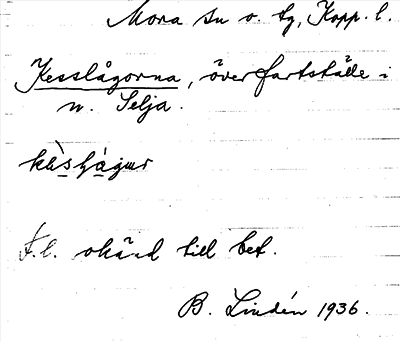 Mora sn o. tg, Kopp. l.
Kesslågorna, överfartställe i
n. Selja.
F.l. okänd till bet.
B. Lindén 1936.